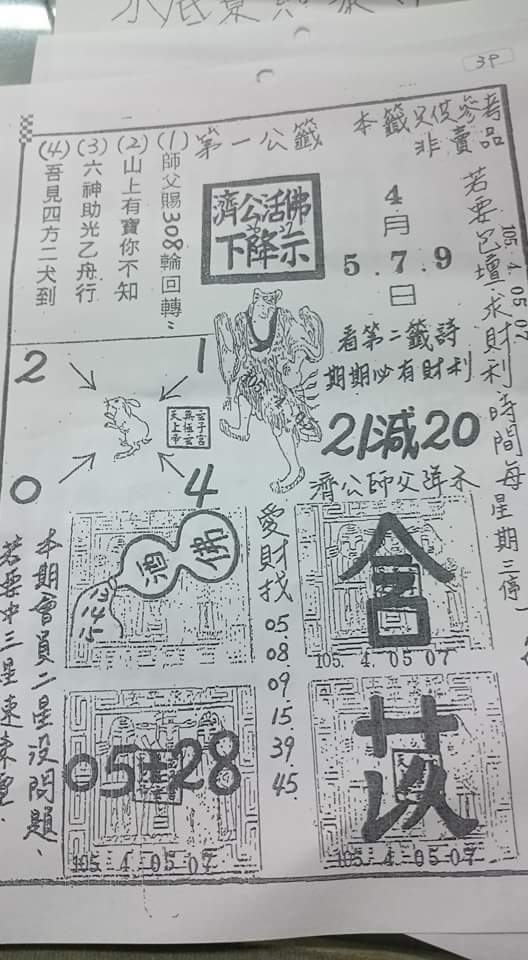 39
本籤只供參考
非賣品
第一公籤
(1)師父賜308輪回轉
(2)山上有寶你不知
(3)六神助光乙舟行
(4)吾見四方二犬到
濟公活佛
下降示
4
月
5.7.9
日
看第二籤詩
期期必有財利
21減20
若要包壇求財利
時間每星期三停
105.4.05.07.
2
1
0
4
玄子宮
真極玄
天上帝
濟公師父降示
愛財找
05.
08.
09
15
39
45.
佛
13
14
15
105.4.05 07
05+28
105.4.05 07
105.4.05.07
本期會員二星沒問題、
若要中三星速來